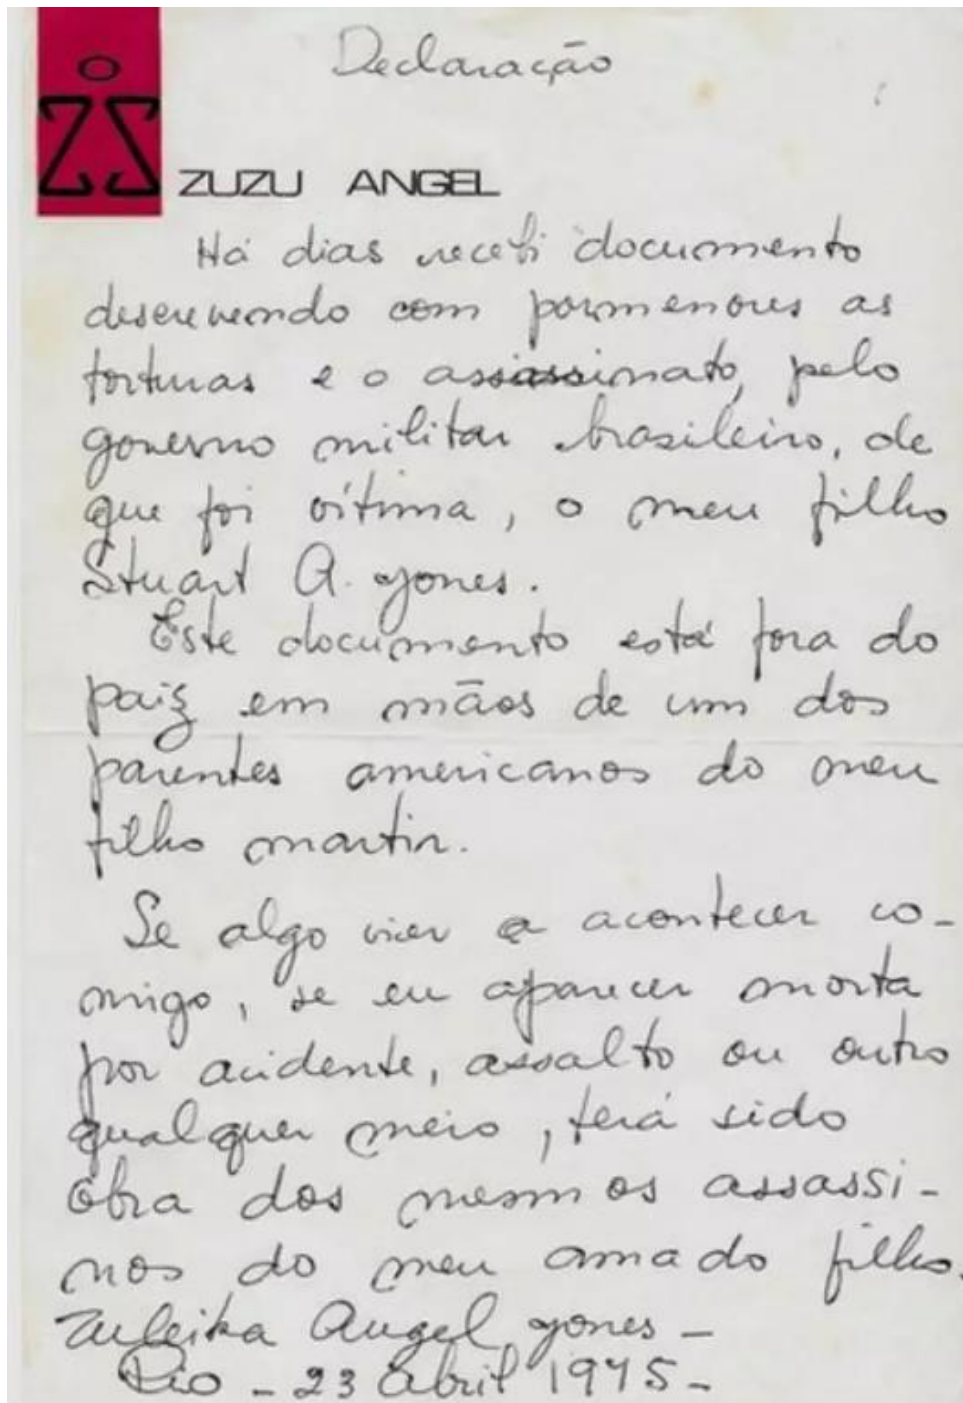 Declaração
ZUZU ANGEL
Há dias recebi documento
descrevendo com pormenores as
torturas e o assassinato, pelo
governo militar brasileiro, de
que foi vítima, o meu filho
Stuart A. Jones.
Este documento está fora do
paiz em mãos de um dos
parentes americanos do meu
filho martir.
Se algo vier a acontecer co-
migo, se eu aparecer morta
por acidente, assalto ou outro
qualquer meio, terá sido
obra dos mesmos assassi-
nos do meu amado filho.
Zuleika Angel Jones -
Rio - 23 Abril 1975 -